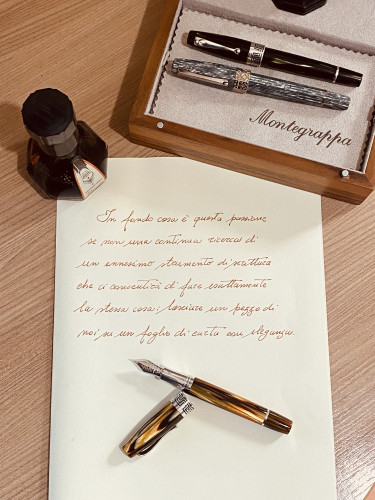 Montegrappa
In fondo cosa è questa passione
se non una continua ricerca di
un ennesimo strumento di scrittura
che ci consentirà di fare esattamente
la stessa cosa: lasciare un pezzo di
noi, su un foglio di carta con eleganza.